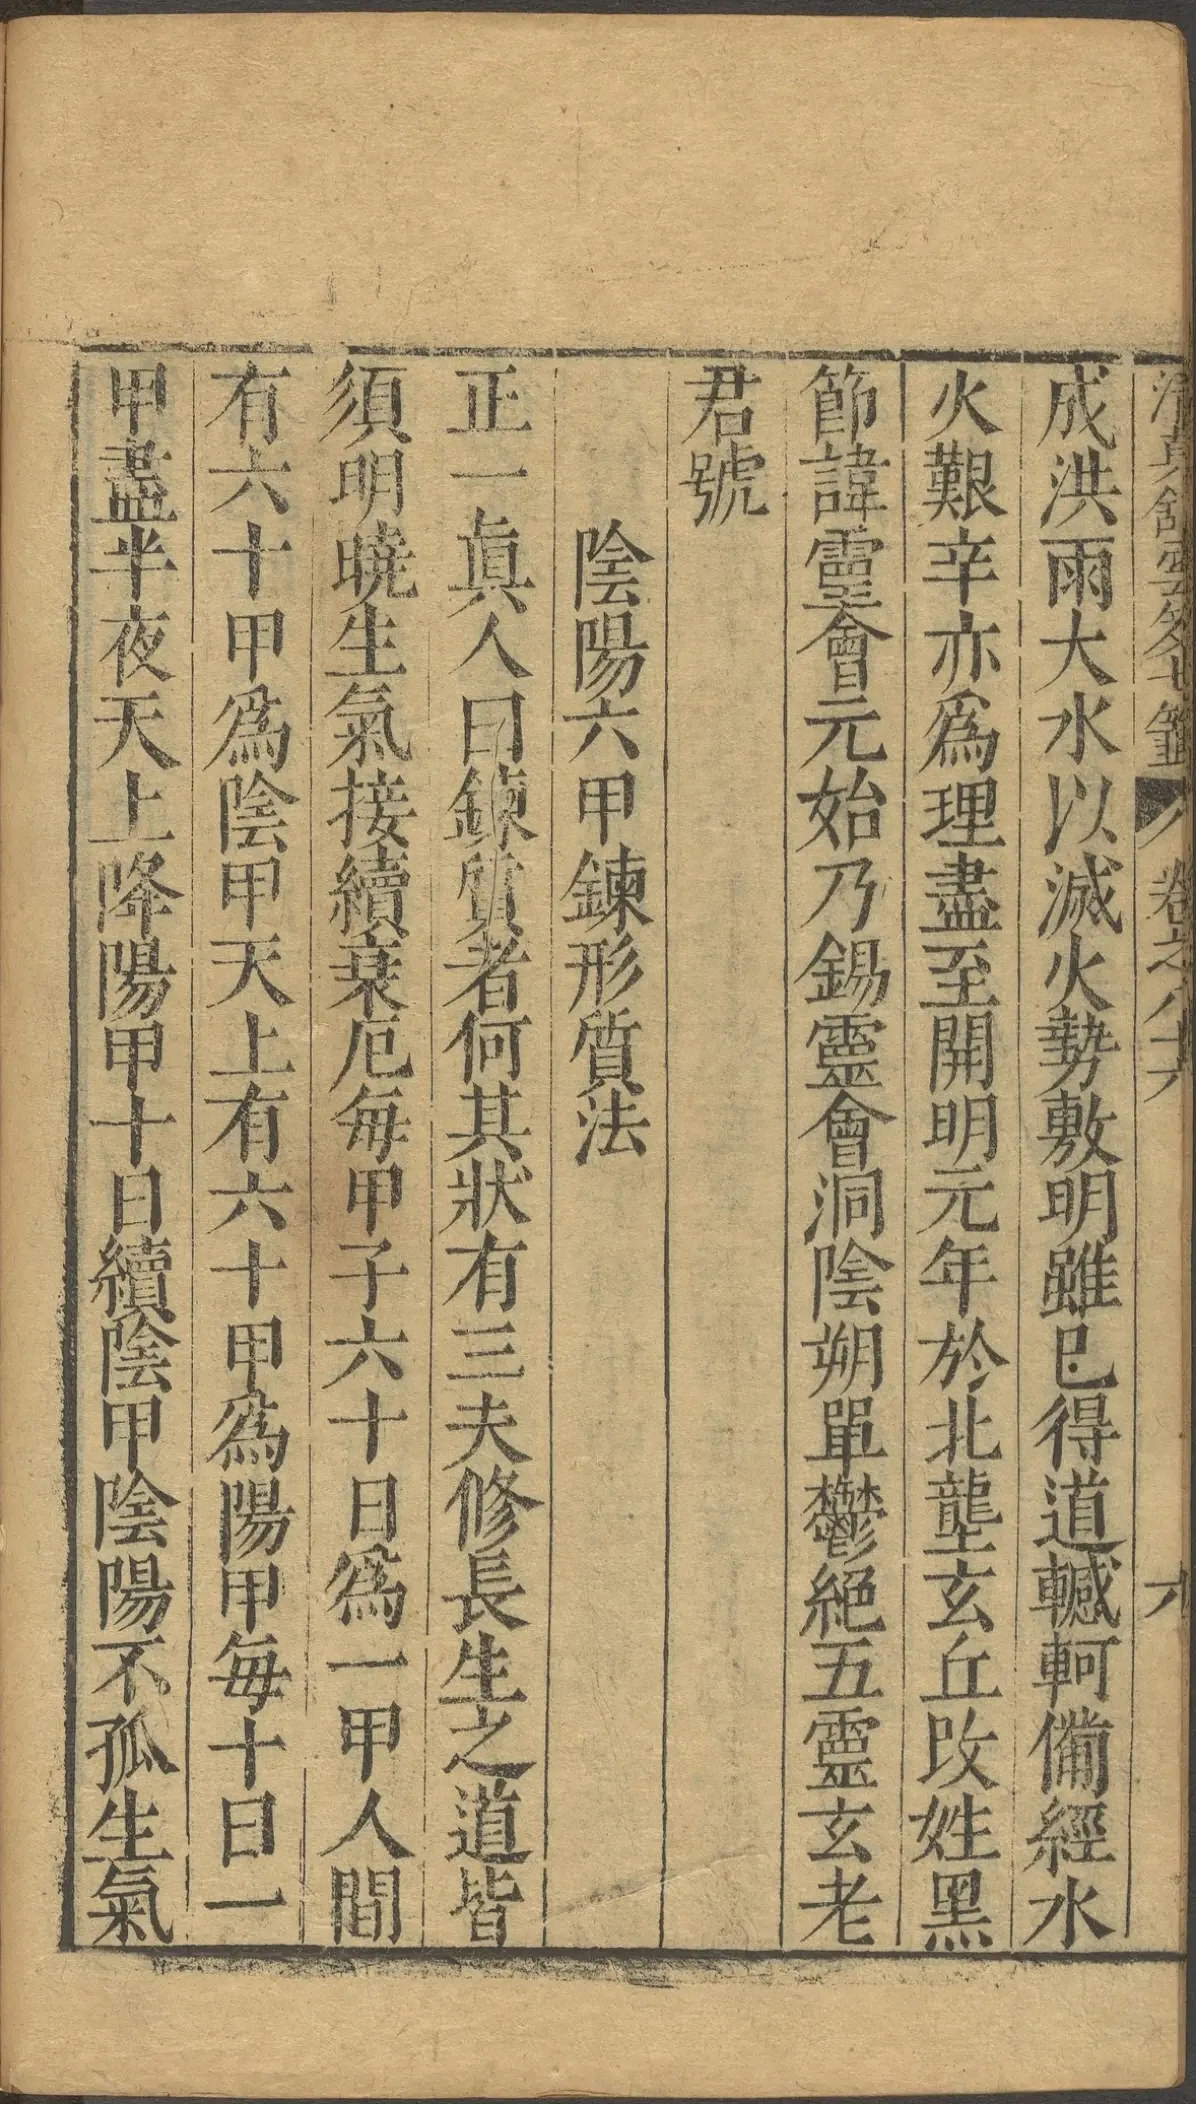 清真館雲笈七籤 卷之八十六 六
成洪雨大水以滅火勢敷明雖已得道轗軻備經水
火艱辛亦爲理盡至開明元年於北壟玄丘改姓黑
節諱靈會元始乃錫靈會洞陰朔單鬱絕五靈玄老
君號
陰陽六甲鍊形質法
正一眞人曰鍊質者何其狀有三夫修長生之道皆
須明曉生氣接續衰厄每甲子六十日爲一甲人間
有六十甲爲陰甲天上有六十甲爲陽甲每十日一
甲盡半夜天上降陽甲十日續陰甲陰陽不孤生氣